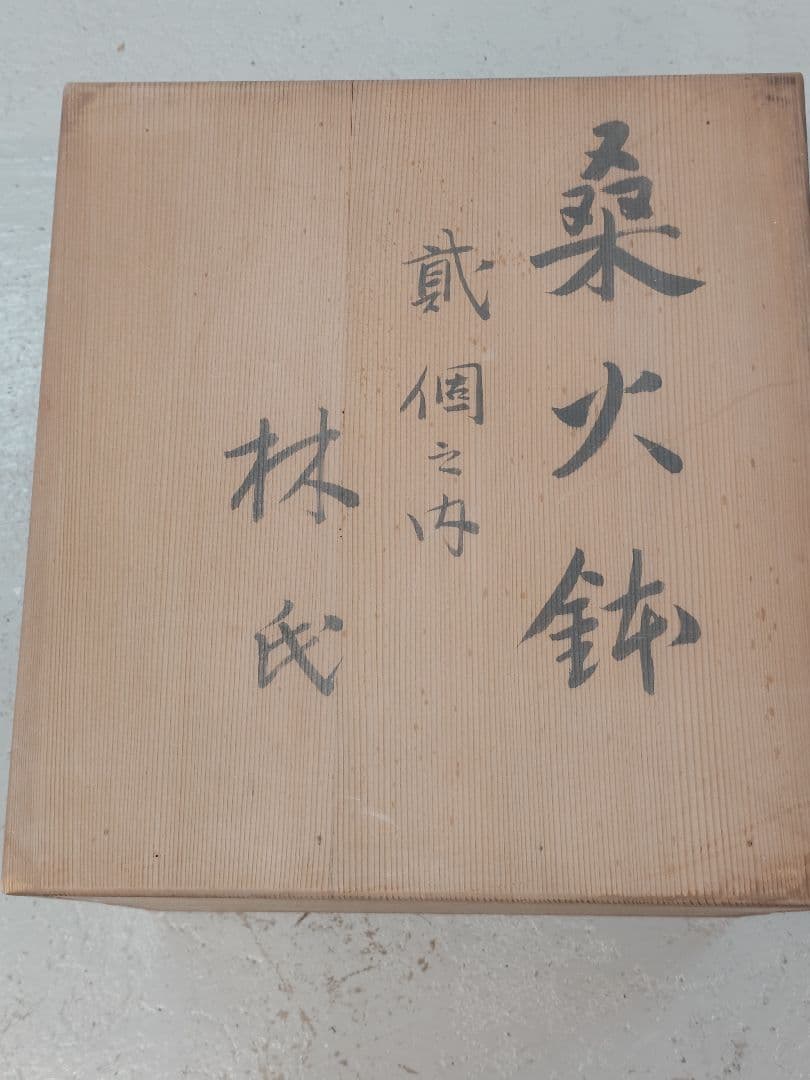 桑火鉢
貳個之内
林氏